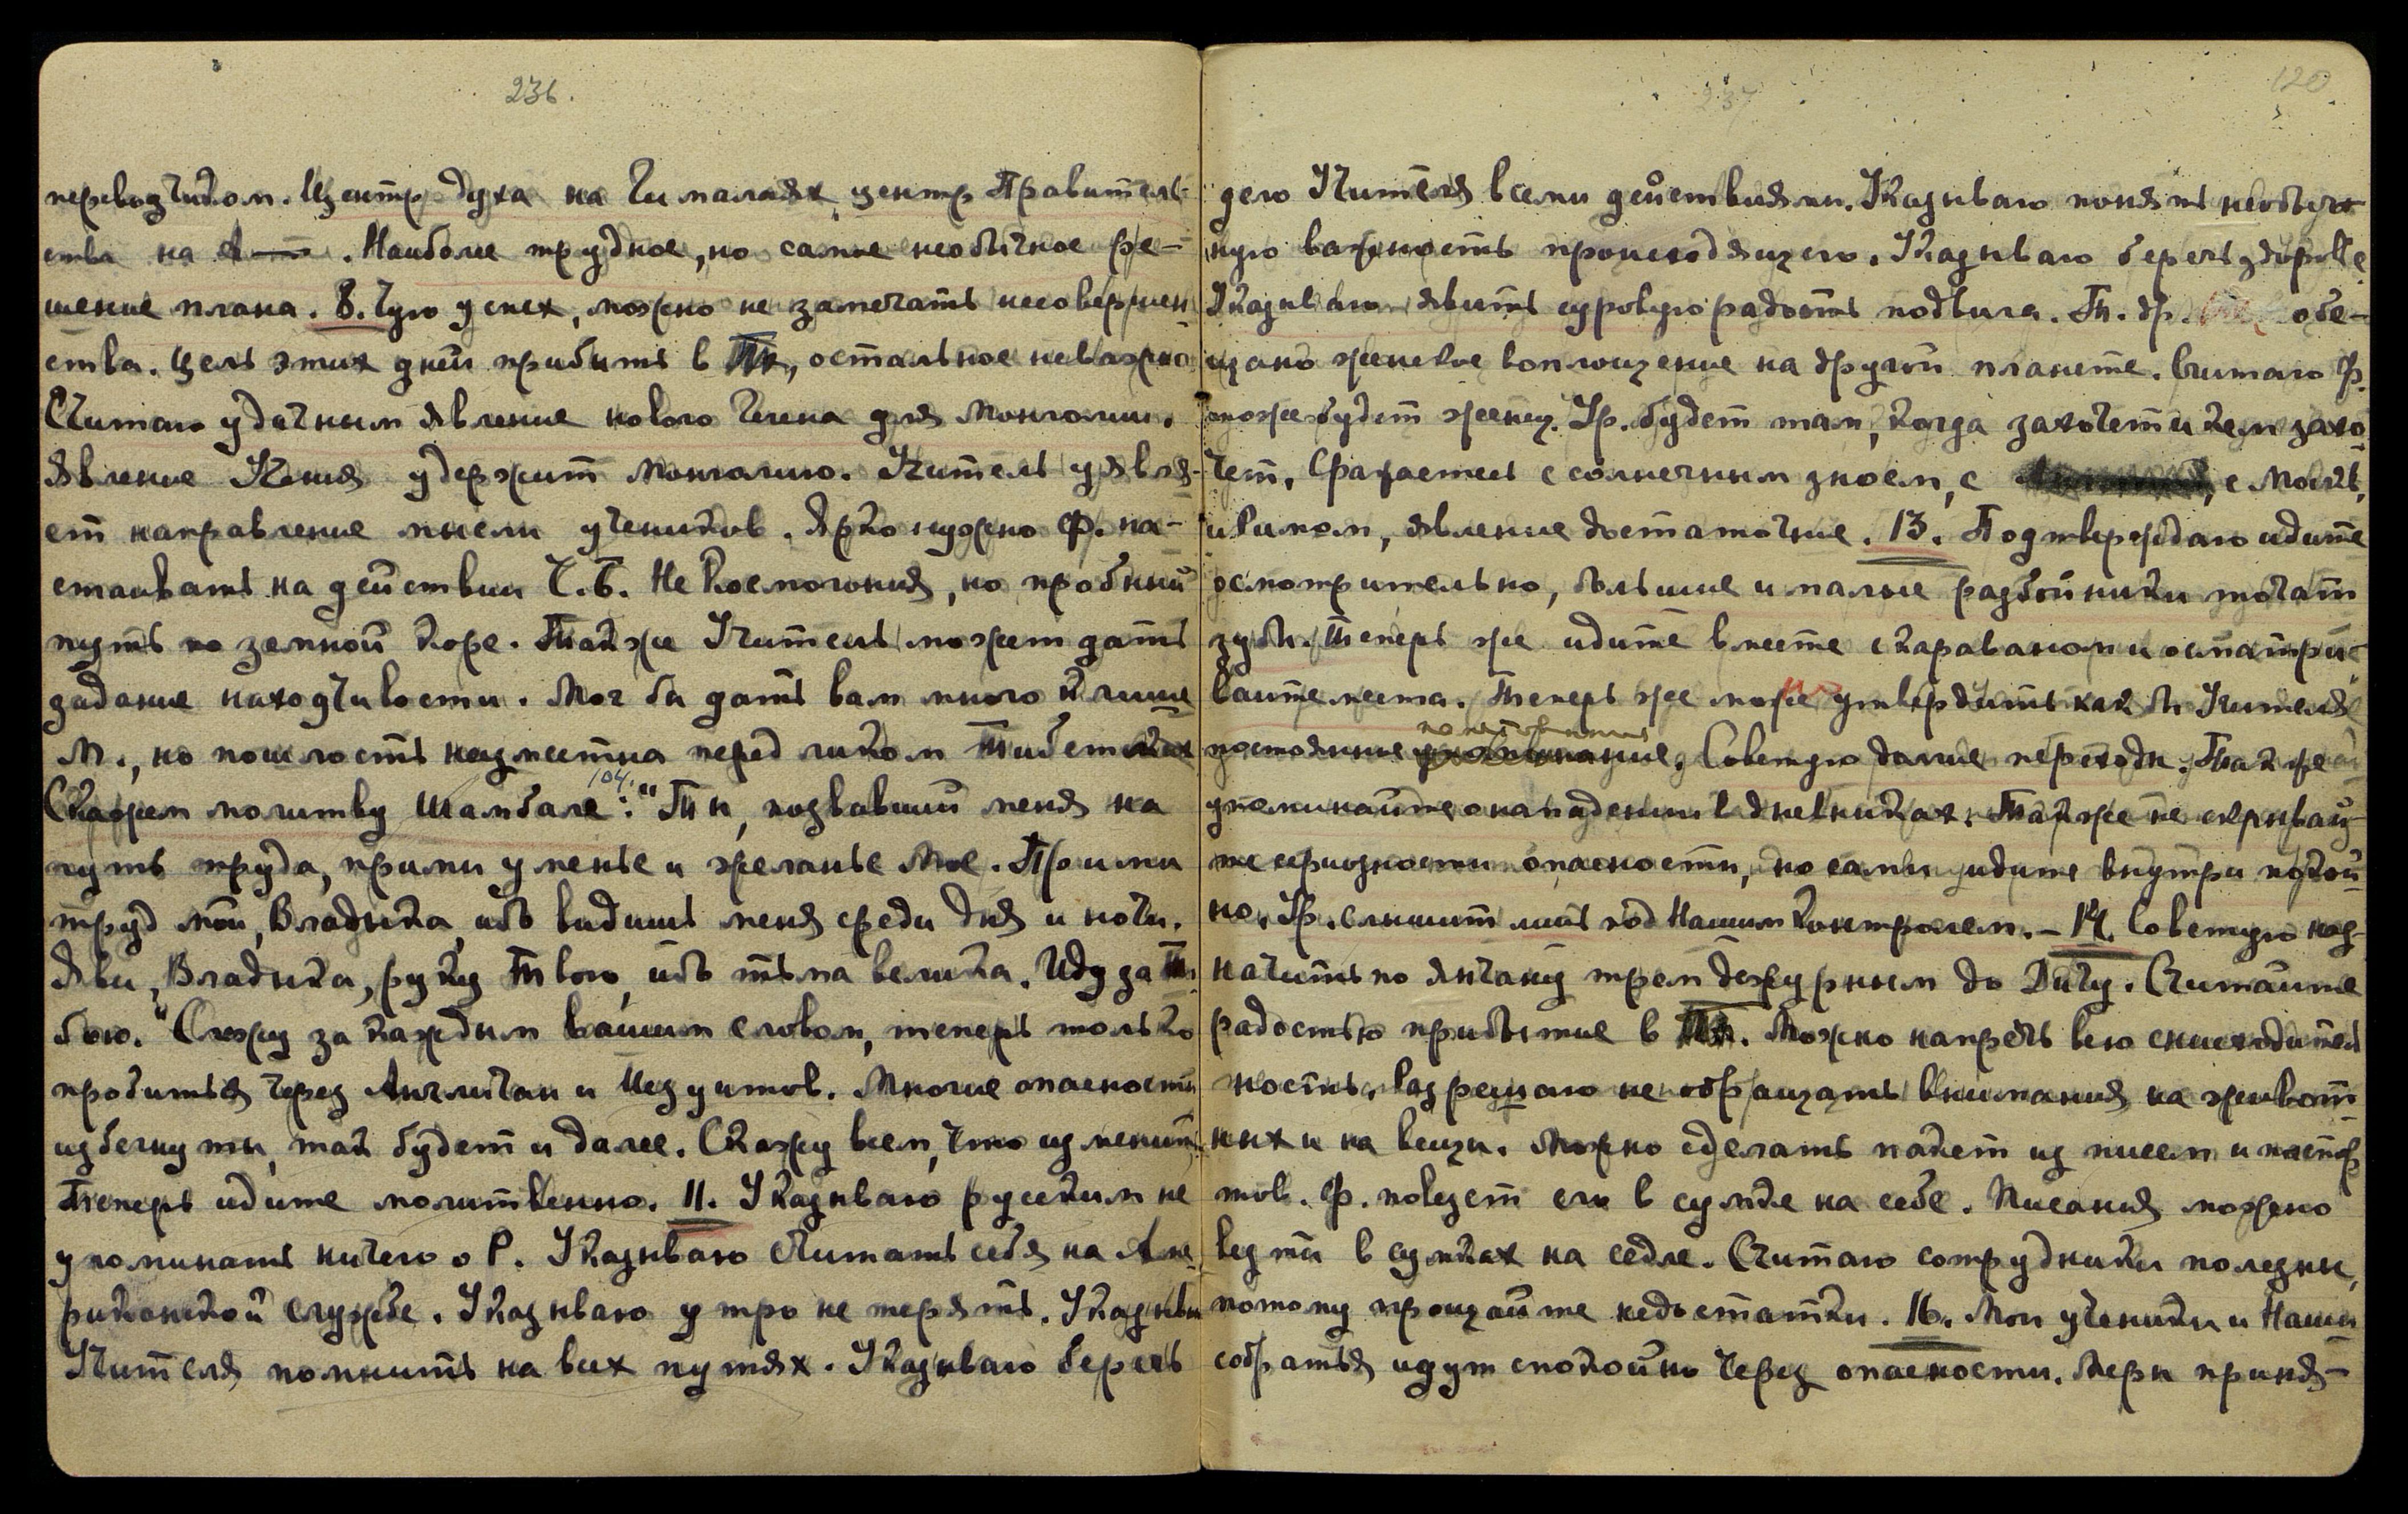 236.
переводчиком. Центр духа на Гималаях, центр Правитель-
ства на А— . Наиболее трудное, но самое необычное ре-
шение плана. 8. Чую успех, можно не замечать несовершен-
ства. Цель этих дней прибыть в Тб, остальное неважно
Считаю удачным явление нового Гегена для Монголии.
Явление Учения удержит Монголию. Учитель уявля-
ет направление мысли учеников. Ярко нужно Ф. на-
стаивать на действии Ч.Б. Не Космогония, но пробный
путь по земной коре. Также Учитель может дать
задание находчивости. Мог бы дать вам много
М., но пошлость неуместна перед ликом Тибетских
104.
Скажем молитву Шамбале: "Ты, позвавший меня на
путь труда, прими уменье и желанье Мое. Прими
труд мой, Владыка, ибо видишь меня среди дня и ночи.
Яви, Владыка, руку Твою, ибо тьма велика. Иду за То-
бою." Слежу за каждым вашим словом, теперь только
пробиться через Англичан и Иезуитов. Многие опасности
избегнуты, так будет и далее. Скажу всем, что изменит
Теперь идите молитвенно. 11. Указываю русским не
упоминать ничего о Р. Указываю считать себя на Аме-
риканской службе. Указываю утро не терять. Указыв
Учителя помнить на всех путях. Указываю беречь
237
120
дело Учителя всеми действиями. Указываю понять необыч-
ную важность происходящего. Указываю беречь здоровье
Указываю явить суровую радость подвига. Т. др. обе-
щано женское воплощение на другой планете. Считаю Ф.
тоже будет женщ. Ур. будет там, когда захочет и кем захо-
чет. Сражаемся с солнечным зноем, с , с Москв,
и Римом, явление достаточное. 13. Подтверждаю идите
осмотрительно, большие и малые разбойники точат
зубы. Теперь же идите вместе с караваном и осматри-
вайте места. Теперь же можно утвердить как бы Учителя
по настроению
постоянные . Советую далее переходы. Также
упоминайте о нападении в дневниках. Также не скрывай-
те серьезности опасности, но сами идите внутри покой-
но. Ур. слышит лишь под Нашим Контролем. – 14. Советую наз-
начить по Янчану трем дежурным до Дичу. Считайте
радостью прибытие в Тб. Можно напрячь всю снисходитель
ность. Разрешаю не обращать внимания на живот-
ных и на вещи. Можно сделать пакет из писем и паспор
тов. Ф. повезет его в сумке на себе. Писания можно
везти в сумках на седле. Считаю сотрудники полезны,
потому прощайте недостатки. 16. Мои ученики и Наши
собратья идут спокойно через опасности. Меры приня-